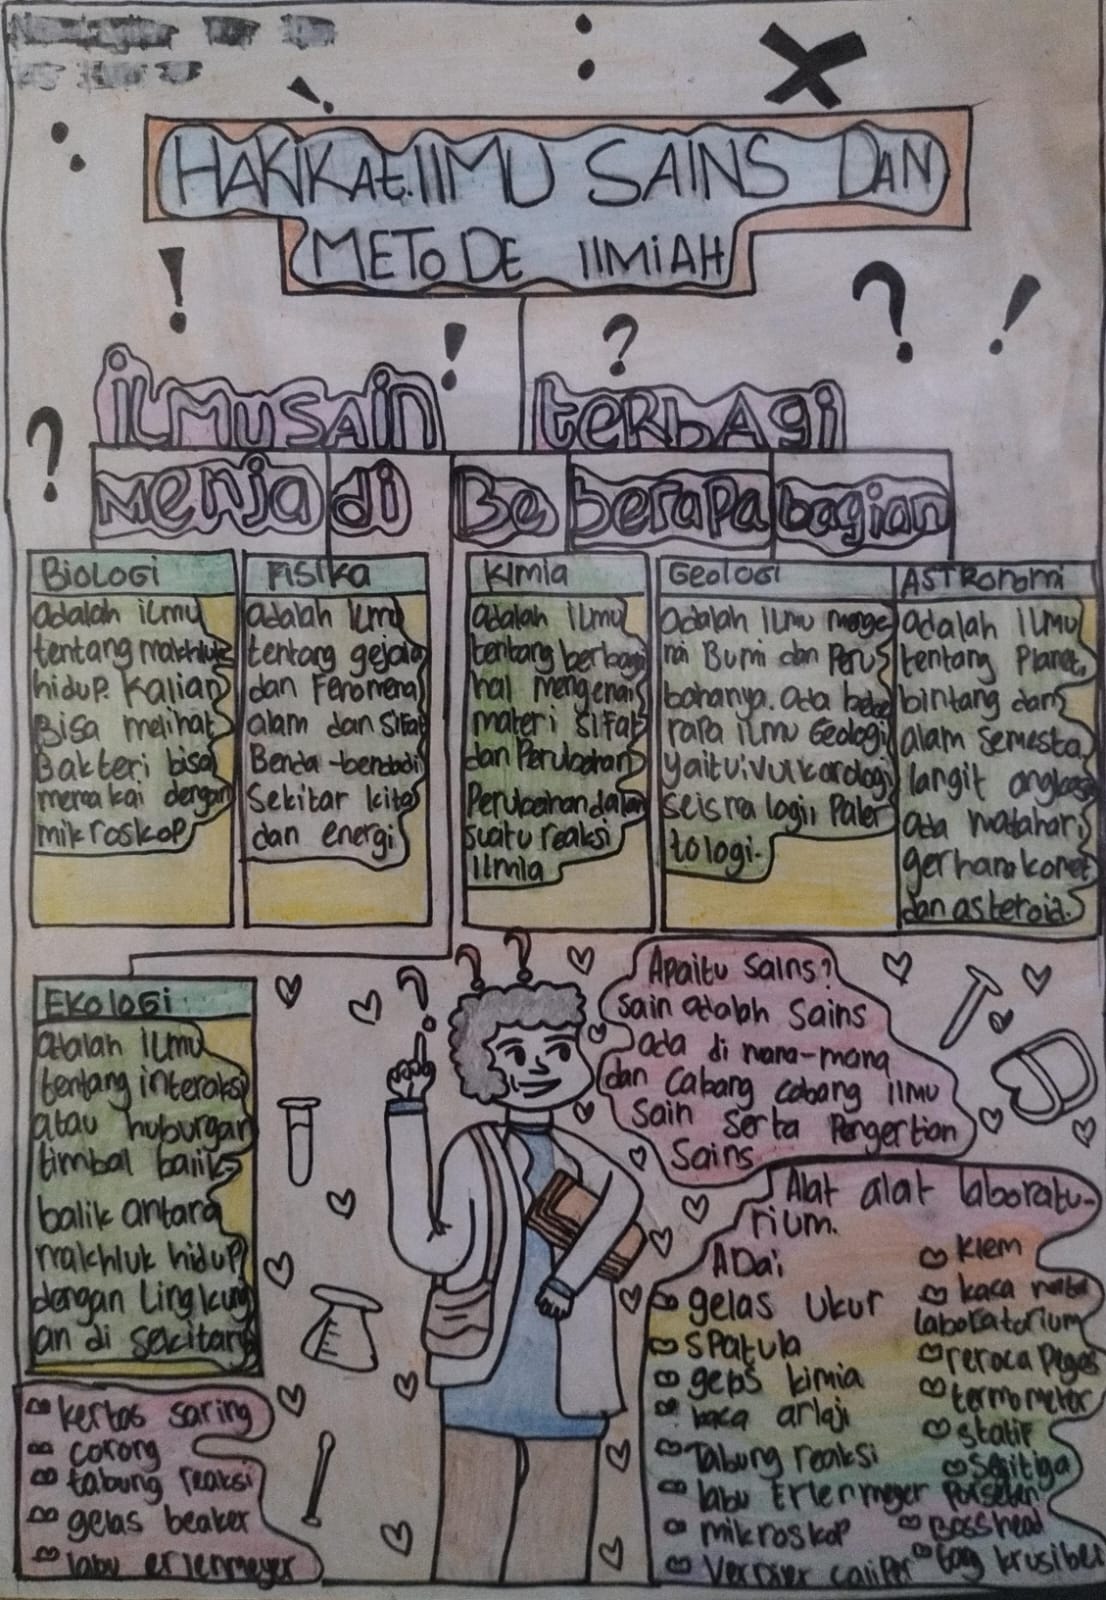 HAKIKAt ILMU SAINS DAN
METODE ILMIAH
ILMU SAIN terbAgi
menjadi Be berapa bagian
BIOLOGI
adalah ilmu
tentang makhluk
hidup. Kalian
Bisa melihat
Bakteri bisa
mema kai dengan
mikroskop
FISIKA
adalah ilmu
tentang gejala
dan Fenomena
alam dan sifat
Benda-benda di
Sekitar kita
dan energi
KIMIA
adalah ilmu
tentang berbagai
hal mengenai
materi sifat
dan Perubahan
Perubahan dalam
suatu reaksi
Ilmia
GEOLOGI
adalah ilmu menge
nai Bumi dan Perus
bahanya. ada bebe
rapa ilmu Geologi
yaitu:
tologi.
ASTRonomi
adalah ILMU
tentang Planet,
bintang dan
alam semesta,
langit angkasa
ada matahari
gerhana komet
dan asteroid.
EKOLOGI
adalah ILMU
tentang interaksi
atau hubungan
timbal balik
balik antara
makhluk hidup
dengan Lingkung
an di sekitar
Apa itu Sains?
Sain adalah Sains
ada di mana-mana
dan Cabang cabang ilmu
Sain serta Pengertian
Sains
Alat alat laboratu-
rium.
ADa:
gelas Ukur
SPatula
gelas kimia
kaca arloji
Tabung reaksi
labu Erlenmeyer
mikroskop
Vernier caliper
Klem
kaca
laboratorium
termometer
statif
Segitiga
Porselen
Bosshead
krusibel
kertas saring
corong
tabung reaksi
gelas beaker
labu erlenmeyer